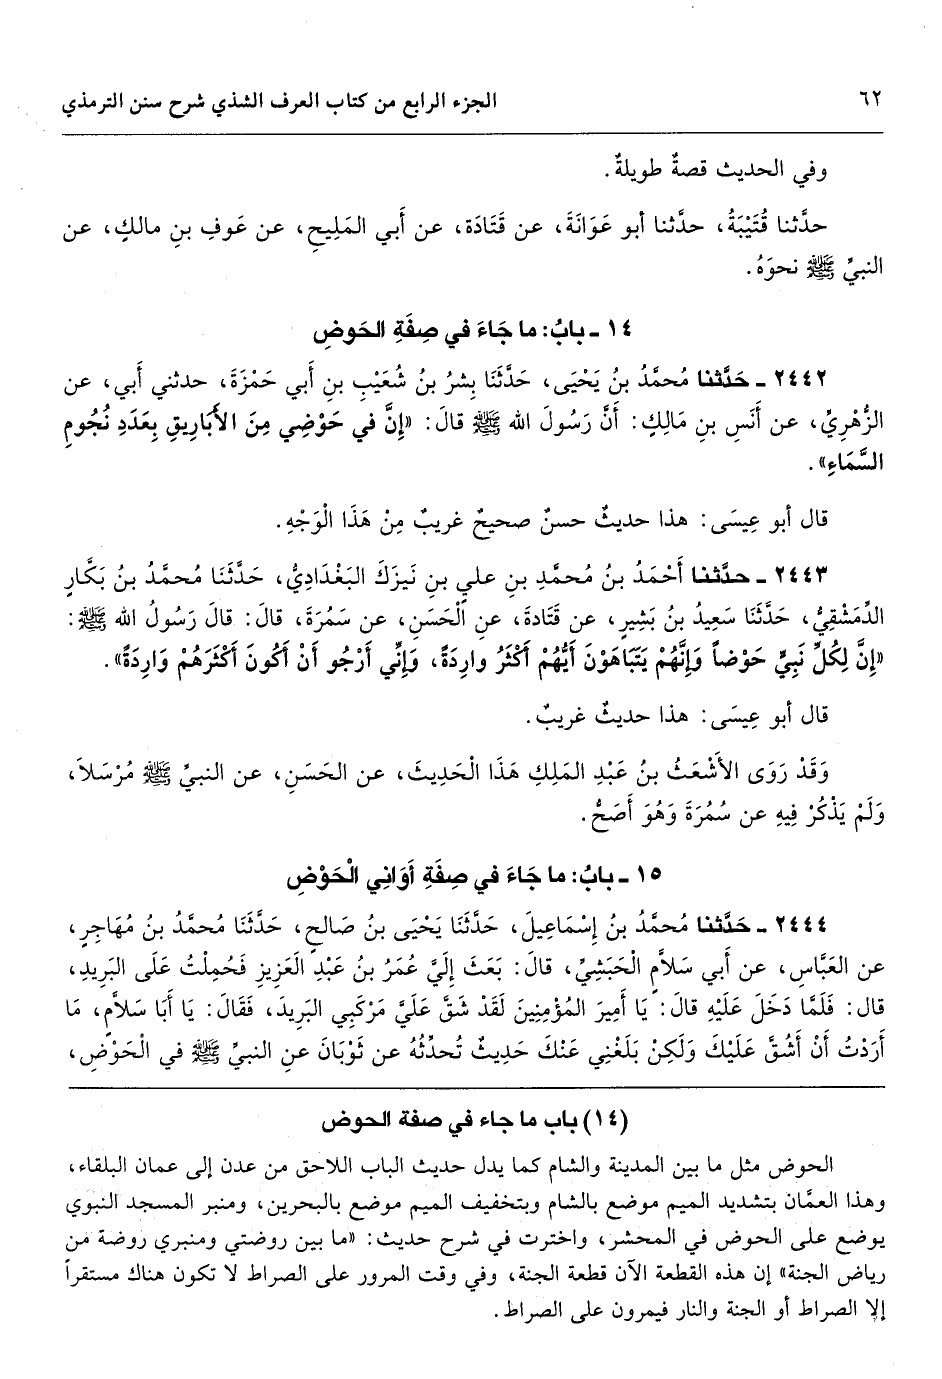 ٦٢ الجزء الرابع من كتاب العرف الشذي شرح سنن الترمذي
وفي الحديث قصةٌ طويلةٌ.
حدَّثنا قُتَيْبَةُ، حدَّثنا أبو عَوَانَةَ، عن قَتَادَة، عن أَبي المَلِيحِ، عن عَوفِ بنِ مالكٍ، عن
النبيِّ ﷺ نحوَهُ.
١٤ ـ بابُ: ما جَاءَ في صِفَةِ الحَوضِ
٢٤٤٢ ـ حَدَّثنا مُحمَّدُ بنُ يَحْيَى، حَدَّثَنَا بِشرُ بنُ شُعَيْبِ بنِ أبي حَمْزَةَ، حدثني أبي، عن
الزُّهْرِيِّ، عن أَنَسِ بنِ مَالِكٍ: أَنَّ رَسُولَ الله ﷺ قالَ: «إِنَّ في حَوْضِي مِنَ الأَبَارِيقِ بِعَدَدِ نُجُومِ
السَّمَاءِ».
قال أبو عِيسَى: هذا حديثٌ حسنٌ صحيحٌ غريبٌ مِنْ هَذَا الْوَجْهِ.
٢٤٤٣ ـ حدَّثنا أَحْمَدُ بنُ مُحمَّدِ بنِ علي بنِ نَيْزَكَ البَغْدَادِيُّ، حَدَّثَنَا مُحمَّدُ بنُ بَكَّارٍ
الدِّمَشْقِيُّ، حَدَّثَنَا سَعِيدُ بنُ بَشِيرٍ، عن قَتَادةَ، عنِ الْحَسَنِ، عن سَمُرَةَ، قالَ: قالَ رَسُولُ الله ﷺ:
«إِنَّ لِكُلِّ نَبِيٍّ حَوْضاً وَإِنَّهُمْ يَتَبَاهَوْنَ أَيُّهُمْ أَكْثَرُ وارِدَةً، وَإِنِّي أَرْجُو أَنْ أَكُونَ أَكْثَرَهُمْ وَارِدَةً».
قال أبو عِيسَى: هذا حديثٌ غريبٌ.
وَقَدْ رَوَى الأَشْعَثُ بنُ عَبْدِ المَلِكِ هَذَا الْحَدِيثَ، عن الحَسَنِ، عن النبيِّ ﷺ مُرْسَلاً،
وَلَمْ يَذْكُرْ فِيهِ عن سُمُرَةَ وَهُوَ أَصَحُّ.
١٥ ـ بابُ: ما جَاءَ في صِفَةِ أَوَانِي الْحَوْضِ
٢٤٤٤ ـ حَدَّثنا مُحمَّدُ بنُ إسْمَاعِيلَ، حَدَّثَنَا يَحْيَى بنُ صَالحٍ، حَدَّثَنَا مُحمَّدُ بنُ مُهَاجِرٍ،
عن العَبَّاسِ، عن أبي سَلاَّمٍ الْحَبَشِيِّ، قالَ: بَعَثَ إِلَيَّ عُمَرُ بنُ عَبْدِ العَزِيزِ فَحُمِلْتُ عَلَى البَرِيدِ،
قال: فَلَمَّا دَخَلَ عَلَيْهِ قالَ: يَا أَمِيرَ المُؤْمِنِينَ لَقَدْ شَقَّ عَلَيَّ مَرْكَبِي البَرِيدَ، فَقَالَ: يَا أَبَا سَلاَّمٍ، مَا
أَرَدْتُ أَنْ أَشُقَّ عَلَيْكَ وَلَكِنْ بَلَغَنِي عَنْكَ حَدِيثٌ تُحَدِّثُهُ عن ثَوْبَانَ عن النبيِّ ﷺ في الْحَوْضِ،
(١٤) باب ما جاء في صفة الحوض
الحوض مثل ما بين المدينة والشام كما يدل حديث الباب اللاحق من عدن إلى عمان البلقاء،
وهذا العمَّان بتشديد الميم موضع بالشام وبتخفيف الميم موضع بالبحرين، ومنبر المسجد النبوي
يوضع على الحوض في المحشر، واخترت في شرح حديث: «ما بين روضتي ومنبري روضة من
رياض الجنة» إن هذه القطعة الآن قطعة الجنة، وفي وقت المرور على الصراط لا تكون هناك مستقراً
إلا الصراط أو الجنة والنار فيمرون على الصراط.